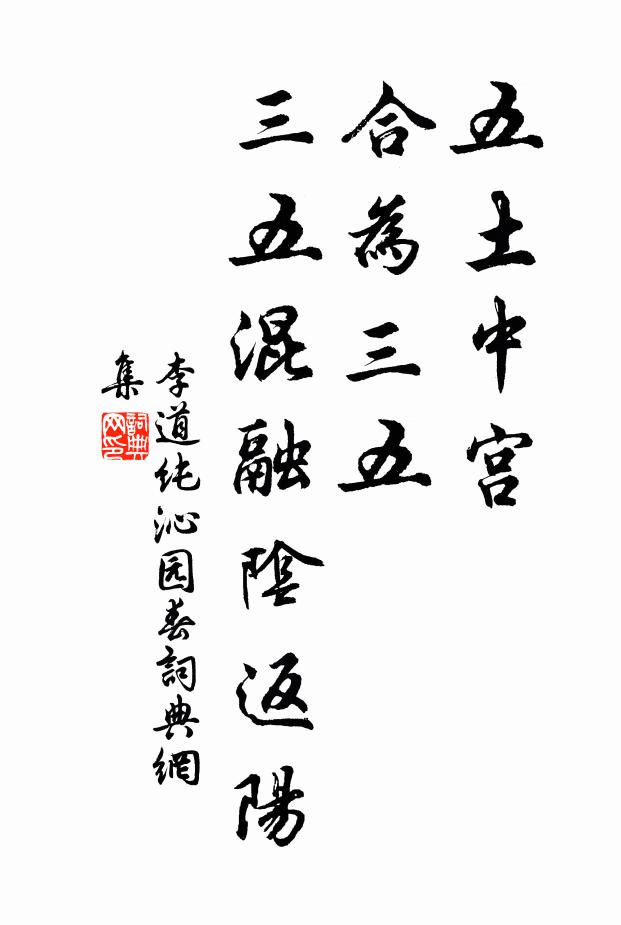 五土中宫
合為三五
三五混融陰返陽
李道纯沁园春詞典網
集
詞典
网印